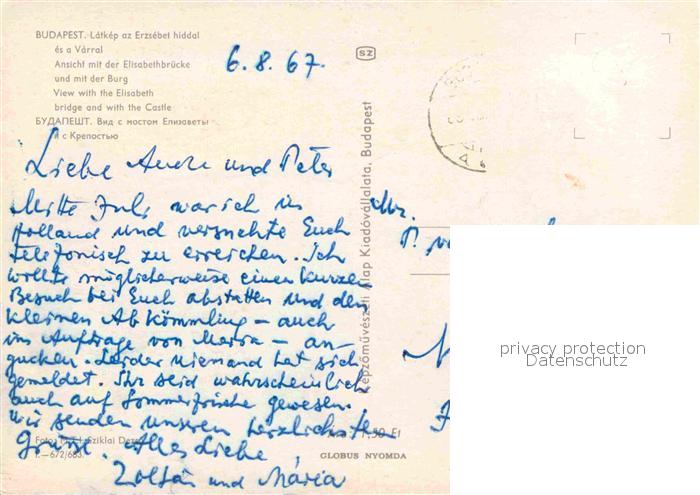 BUDAPEST. Látkép az Erzsébet híddal
és a Várral
Ansicht mit der Elisabethbrücke
und mit der Burg
View with the Elisabeth
bridge and with the Castle
БУДАПЕШТ. Вид с мостом Елизаветы
и с Крепостью
6.8.67.
SZ
Liebe und Peter
Mitte Juli war ich in
Holland und versuchte Euch
telefonisch zu erreichen. Ich
wollte möglicherweise einen kurzen
Besuch bei Euch abstatten und den
kleinen Abkömmling – auch
im Auftrage von – an-
gucken. Leider niemand hat sich
gemeldet. Ihr seid wahrscheinlich
auch auf Sommerfrische gewesen.
Wir senden unseren herzlichsten
Gruss. Alles Liebe
Zoltán und Mária
Képzőművészeti Alap Kiadóvállalata, Budapest
P.
privacy protection
Datenschutz
Sziklai
1,50 Ft
–672/683.
GLOBUS NYOMDA